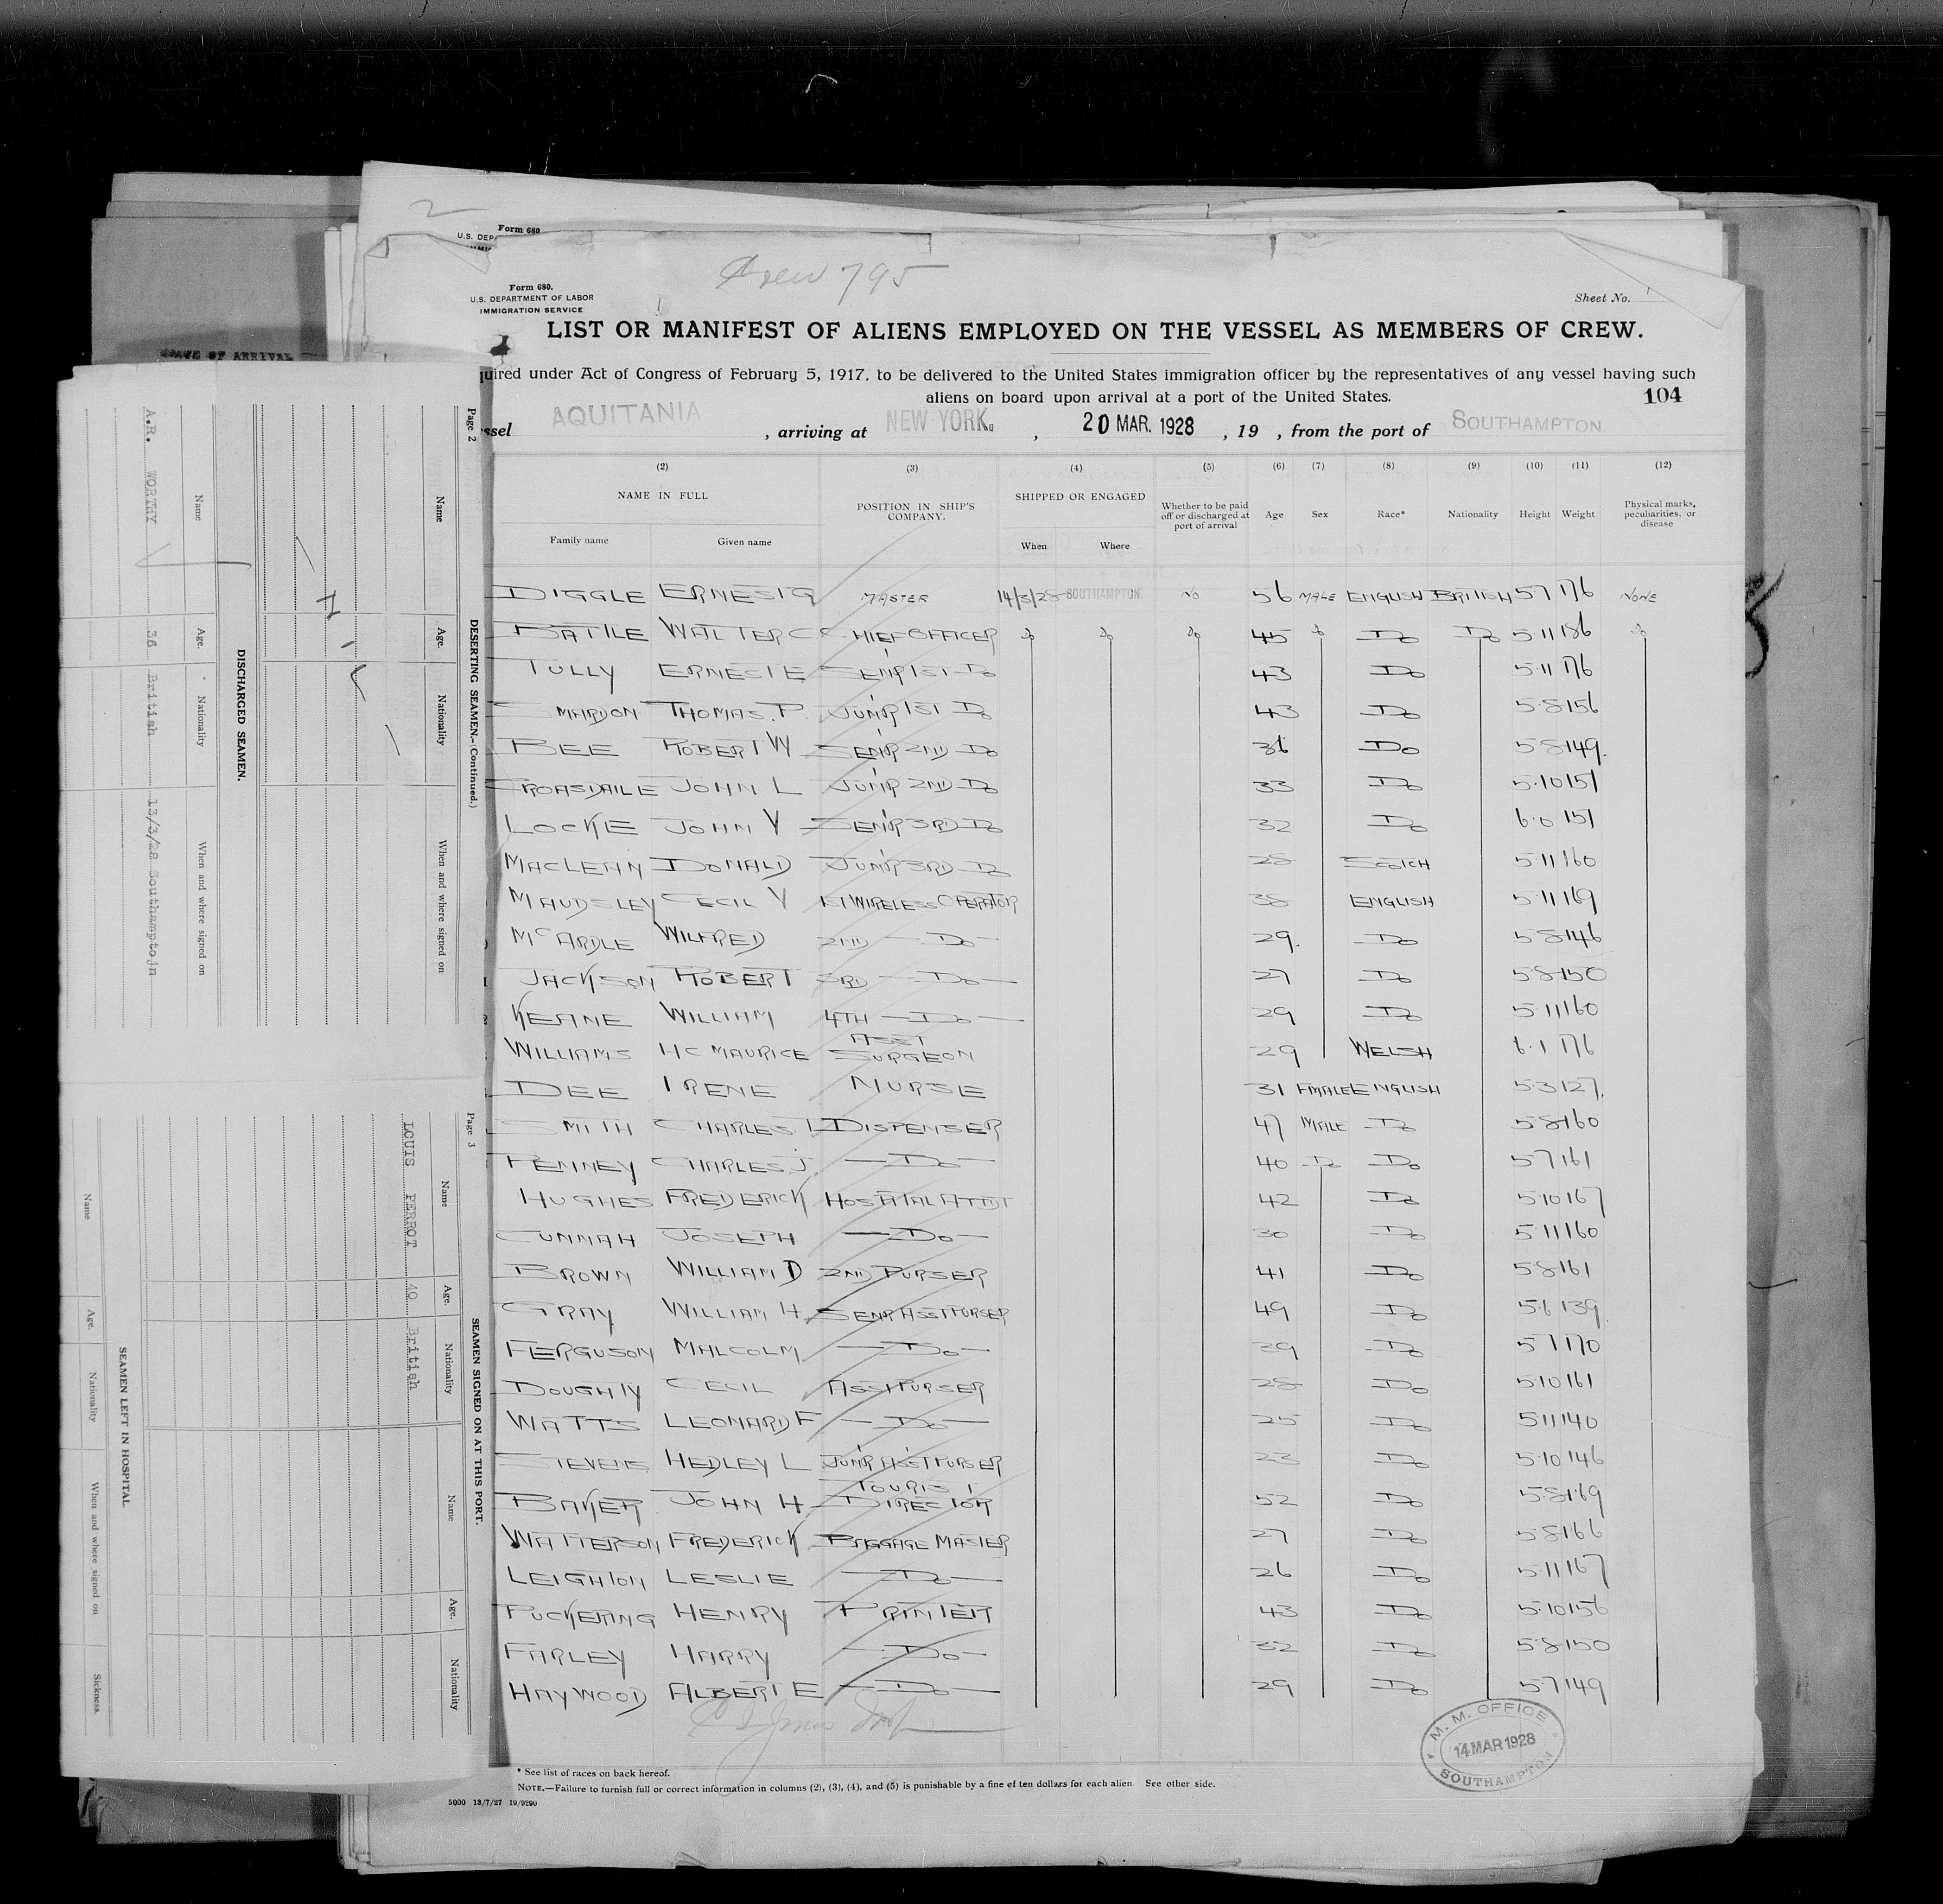 2
Form 680
U.S. DEP
Crew 795
Form 680.
U.S. DEPARTMENT OF LABOR
IMMIGRATION SERVICE
Sheet No.
LIST OR MANIFEST OF ALIENS EMPLOYED ON THE VESSEL AS MEMBERS OF CREW.
quired under Act of Congress of February 5, 1917, to be delivered to the United States immigration officer by the representatives of any vessel having such
aliens on board upon arrival at a port of the United States.
104
ssel AQUITANIA , arriving at NEW YORK. , 20 MAR. 1928 , 19 , from the port of SOUTHAMPTON
(2) (3) (4) (5) (6) (7) (8) (9) (10) (11) (12)
NAME IN FULL POSITION IN SHIP'S COMPANY. SHIPPED OR ENGAGED Whether to be paid off or discharged at port of arrival Age Sex Race* Nationality Height Weight Physical marks, peculiarities, or disease
Family name Given name When Where
DIGGLE ERNEST G MASTER 14/3/28 SOUTHAMPTON. NO 56 MALE ENGLISH BRITISH 5 7 176 NONE
BATTLE WALTER C CHIEF OFFICER do do do 45 do Do Do 5.11 186 do
TULLY ERNEST E SENR 1ST Do 43 Do 5.11 176
SMARDON THOMAS. P. JUNR 1ST Do 43 Do 5.8 156
BEE ROBERT W SENR 2ND Do 36 Do 5.8 149.
CROASDAILE JOHN L JUNR 2ND Do 33 Do 5.10 151
LOCKE JOHN V SENR 3RD Do 32 Do 6.0 151
MACLEAN DONALD JUNR 3RD Do 28 SCOTCH 5.11 160
MAUDSLEY CECIL V 1ST WIRELESS OPERATOR 38 ENGLISH 5.11 169
McARDLE WILFRED 2ND — Do — 29. Do 5.8 146
JACKSON ROBERT 3RD — Do — 27 Do 5.8 150
KEANE WILLIAM 4TH — Do — 29 Do 5.11 160
WILLIAMS H C MAURICE ASST SURGEON 29 WELSH 6.1 176
DEE IRENE NURSE 31 FMALE ENGLISH 5.3 127.
SMITH CHARLES. DISPENSER 47 MALE Do 5.8 160
PENNEY CHARLES. J. — Do — 40 Do Do 5.7 161
HUGHES FREDERICK HOSPITAL ATTDT 42 Do 5.10 167
CUNNAH JOSEPH — Do — 30 Do 5.11 160
BROWN WILLIAM D 2ND PURSER 41 Do 5.8 161
GRAY WILLIAM H. SENR ASST PURSER 49 Do 5.6 139
FERGUSON MALCOLM — Do — 39 Do 5 7 170
DOUGHTY CECIL ASST PURSER 28 Do 5.10 161
WATTS LEONARD F — Do — 25 Do 5.11 140
STEVENS HEDLEY L JUNR ASST PURSER 23 Do 5.10 146
BAKER JOHN H. TOURIST DIRECTOR 52 Do 5.8 169
WATTERSON FREDERICK BAGGAGE MASTER 27 Do 5.8 166
LEIGHTON LESLIE — Do — 26 Do 5.11 167
PUCKERING HENRY PRINTER 43 Do 5.10 156
FARLEY HARRY — Do — 32 Do 5.8 150
HAYWOOD ALBERT E — Do — 29 Do 5.7 149
M. M. OFFICE
14 MAR 1928
SOUTHAMPTON
* See list of races on back hereof.
NOTE.—Failure to furnish full or correct information in columns (2), (3), (4), and (5) is punishable by a fine of ten dollars for each alien. See other side.
5000 13/7/27 19/9290
OF ARRIVAL
Page 2
DESERTING SEAMEN.—(Continued.)
Name Age. Nationality When and where signed on
DISCHARGED SEAMEN.
Name Age. Nationality When and where signed on
A.R. WORTHY 36 British 13/3/28 Southampton
Page 3
SEAMEN SIGNED ON AT THIS PORT.
Name Age. Nationality Name Age. Nationality
LOUIS PERROT 40 British
SEAMEN LEFT IN HOSPITAL.
Name Age. Nationality When and where signed on Sickness.